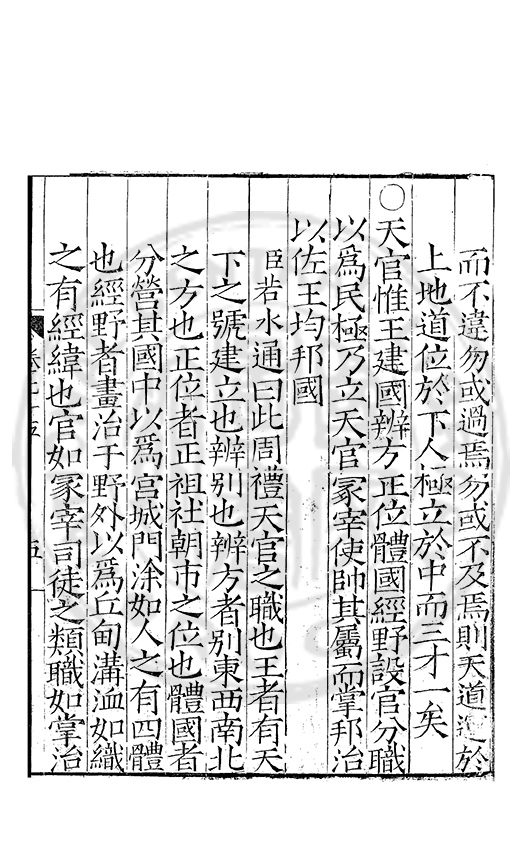 而不違勿或過焉勿或不及焉則天道運於
上地道位於下人極立於中而三才一矣
○天官惟王建國辨方正位體國經野設官分職
以爲民極乃立天官冢宰使帥其屬而掌邦治
以佐王均邦國
臣若水通曰此周禮天官之職也王者有天
下之號建立也辨別也辨方者別東西南北
之方也正位者正祖社朝市之位也體國者
分營其國中以爲宮城門涂如人之有四體
也經野者畫治于野外以爲丘甸溝洫如織
之有經緯也官如冢宰司徒之類職如掌治
卷七十五 五